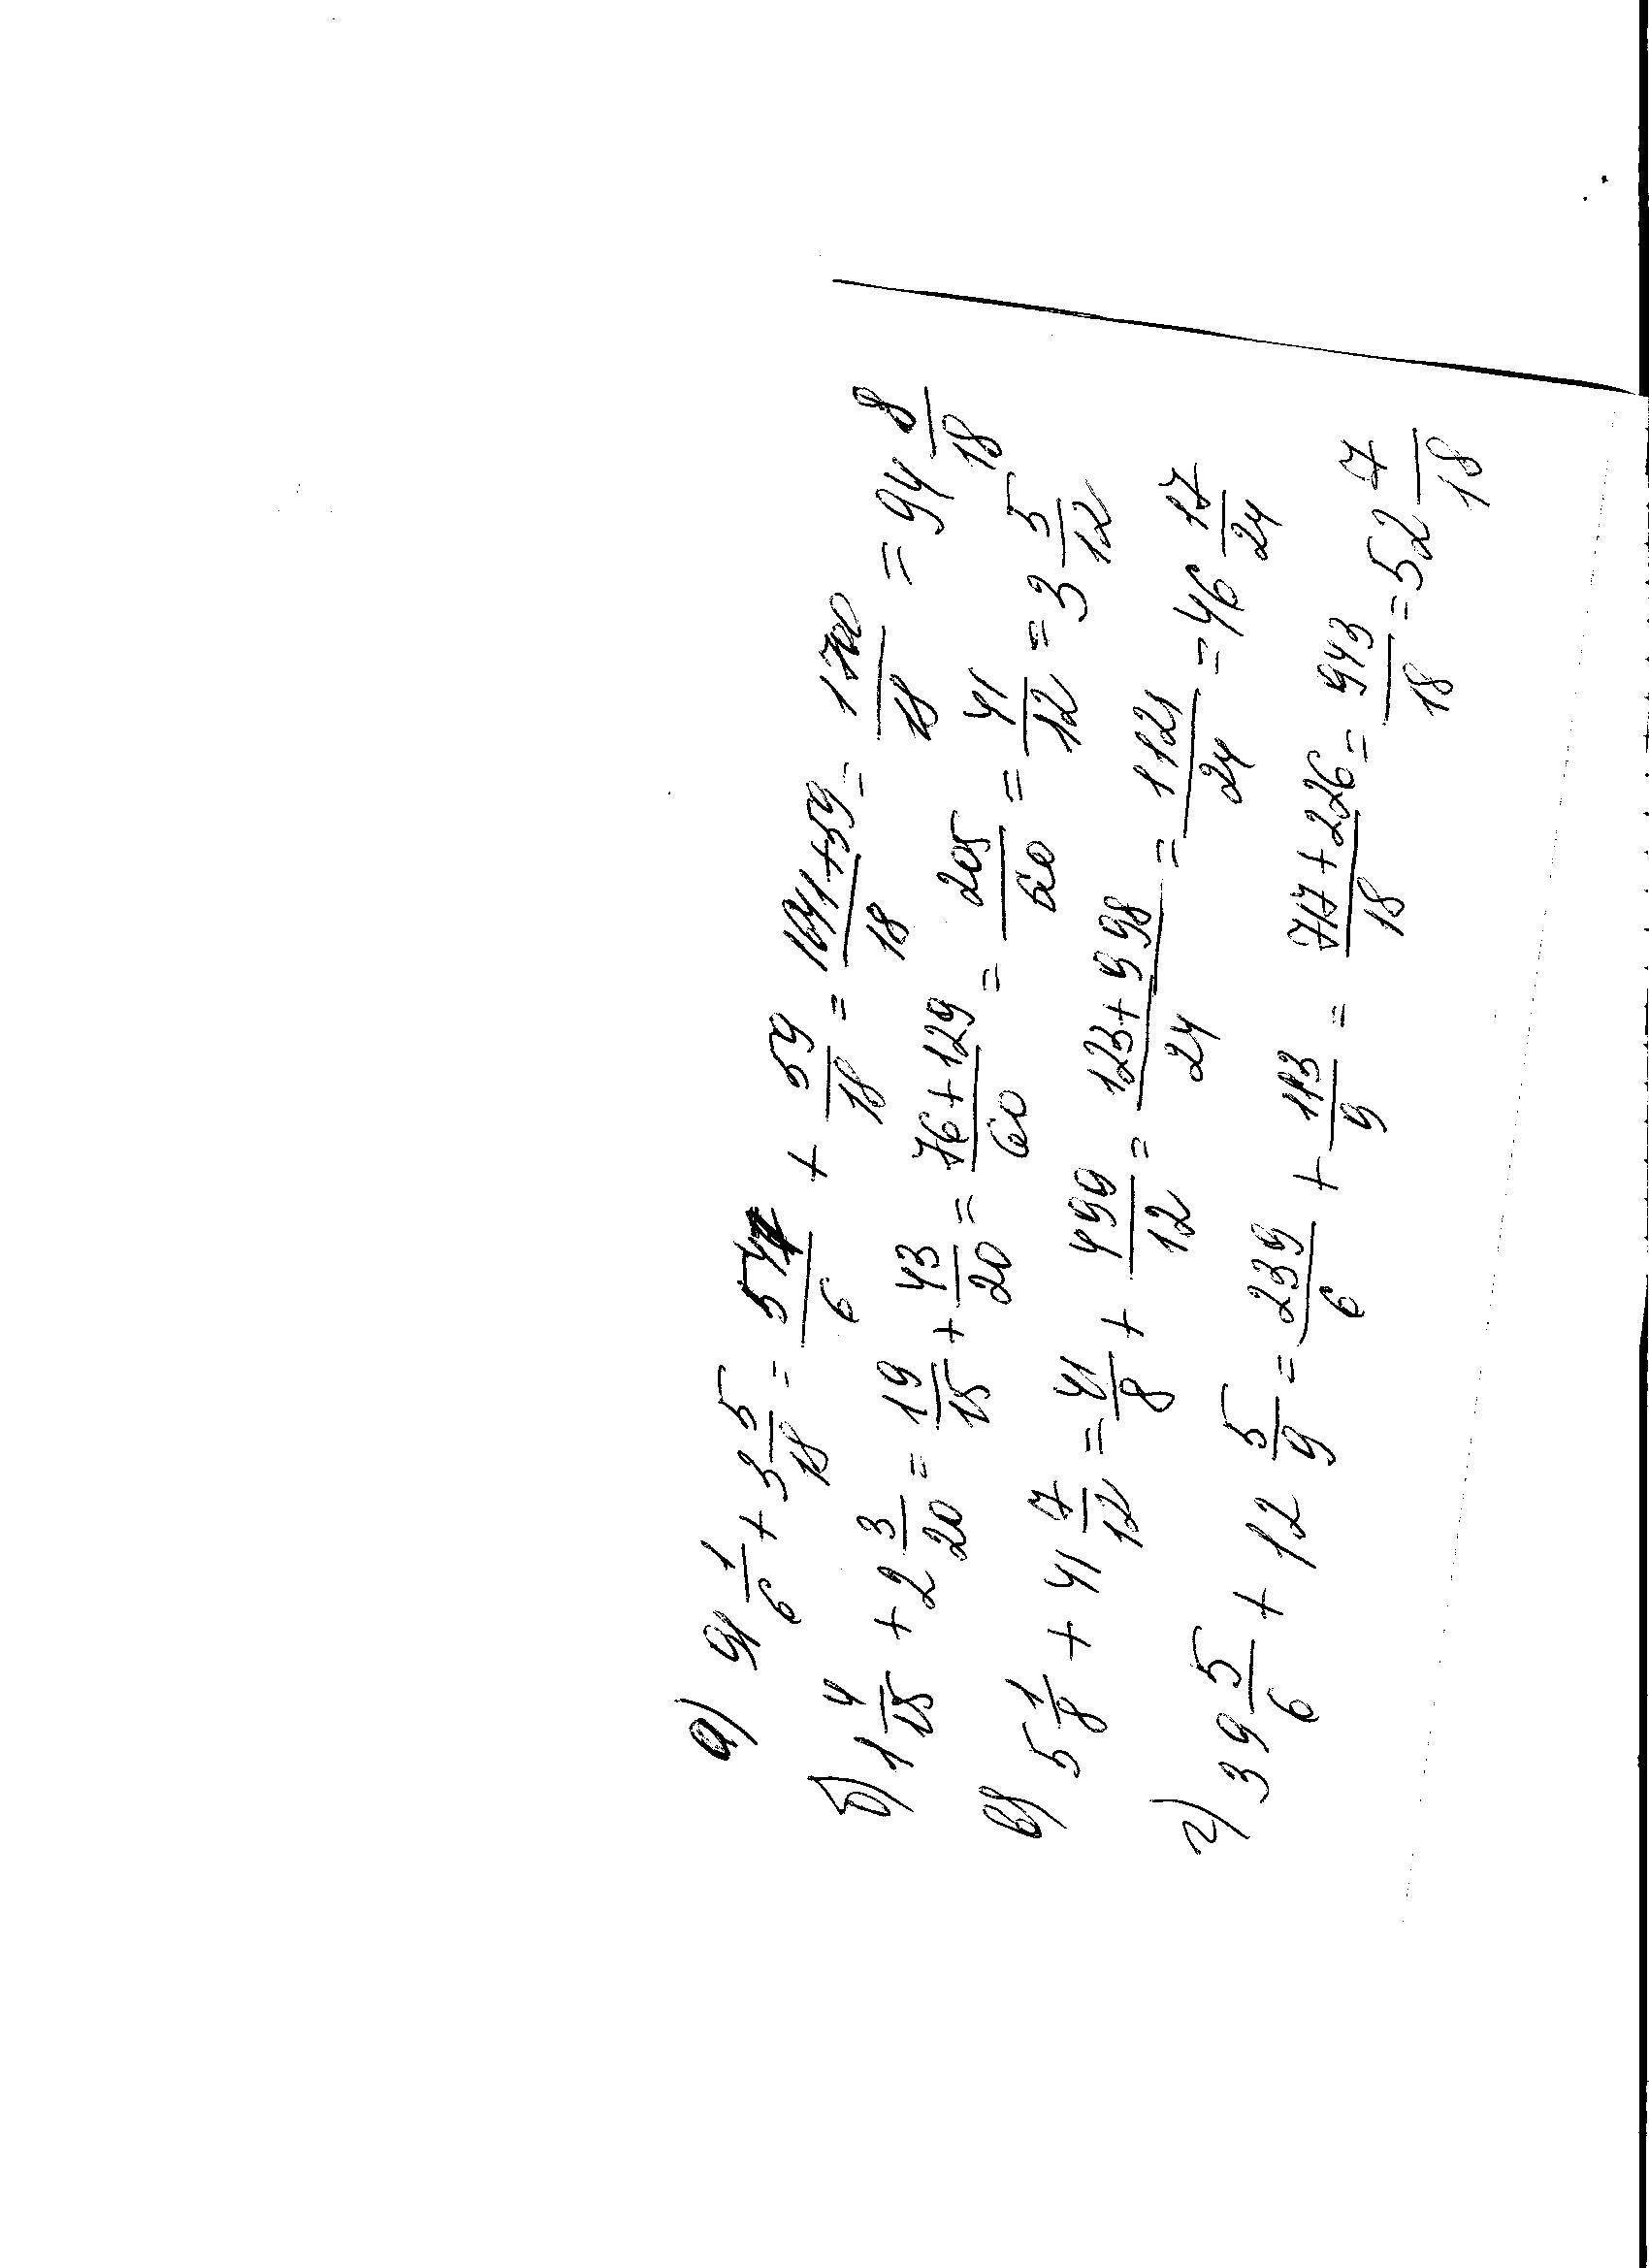 а) 91 1/6 + 3 5/18 = 547/6 + 59/18 = 1641+59/18 = 1700/18 = 94 8/18
б) 1 4/15 + 2 3/20 = 19/15 + 43/20 = 76+129/60 = 205/60 = 41/12 = 3 5/12
в) 5 1/8 + 41 7/12 = 41/8 + 499/12 = 123+998/24 = 1121/24 = 46 17/24
г) 39 5/6 + 12 5/9 = 239/6 + 113/9 = 717+226/18 = 943/18 = 52 7/18